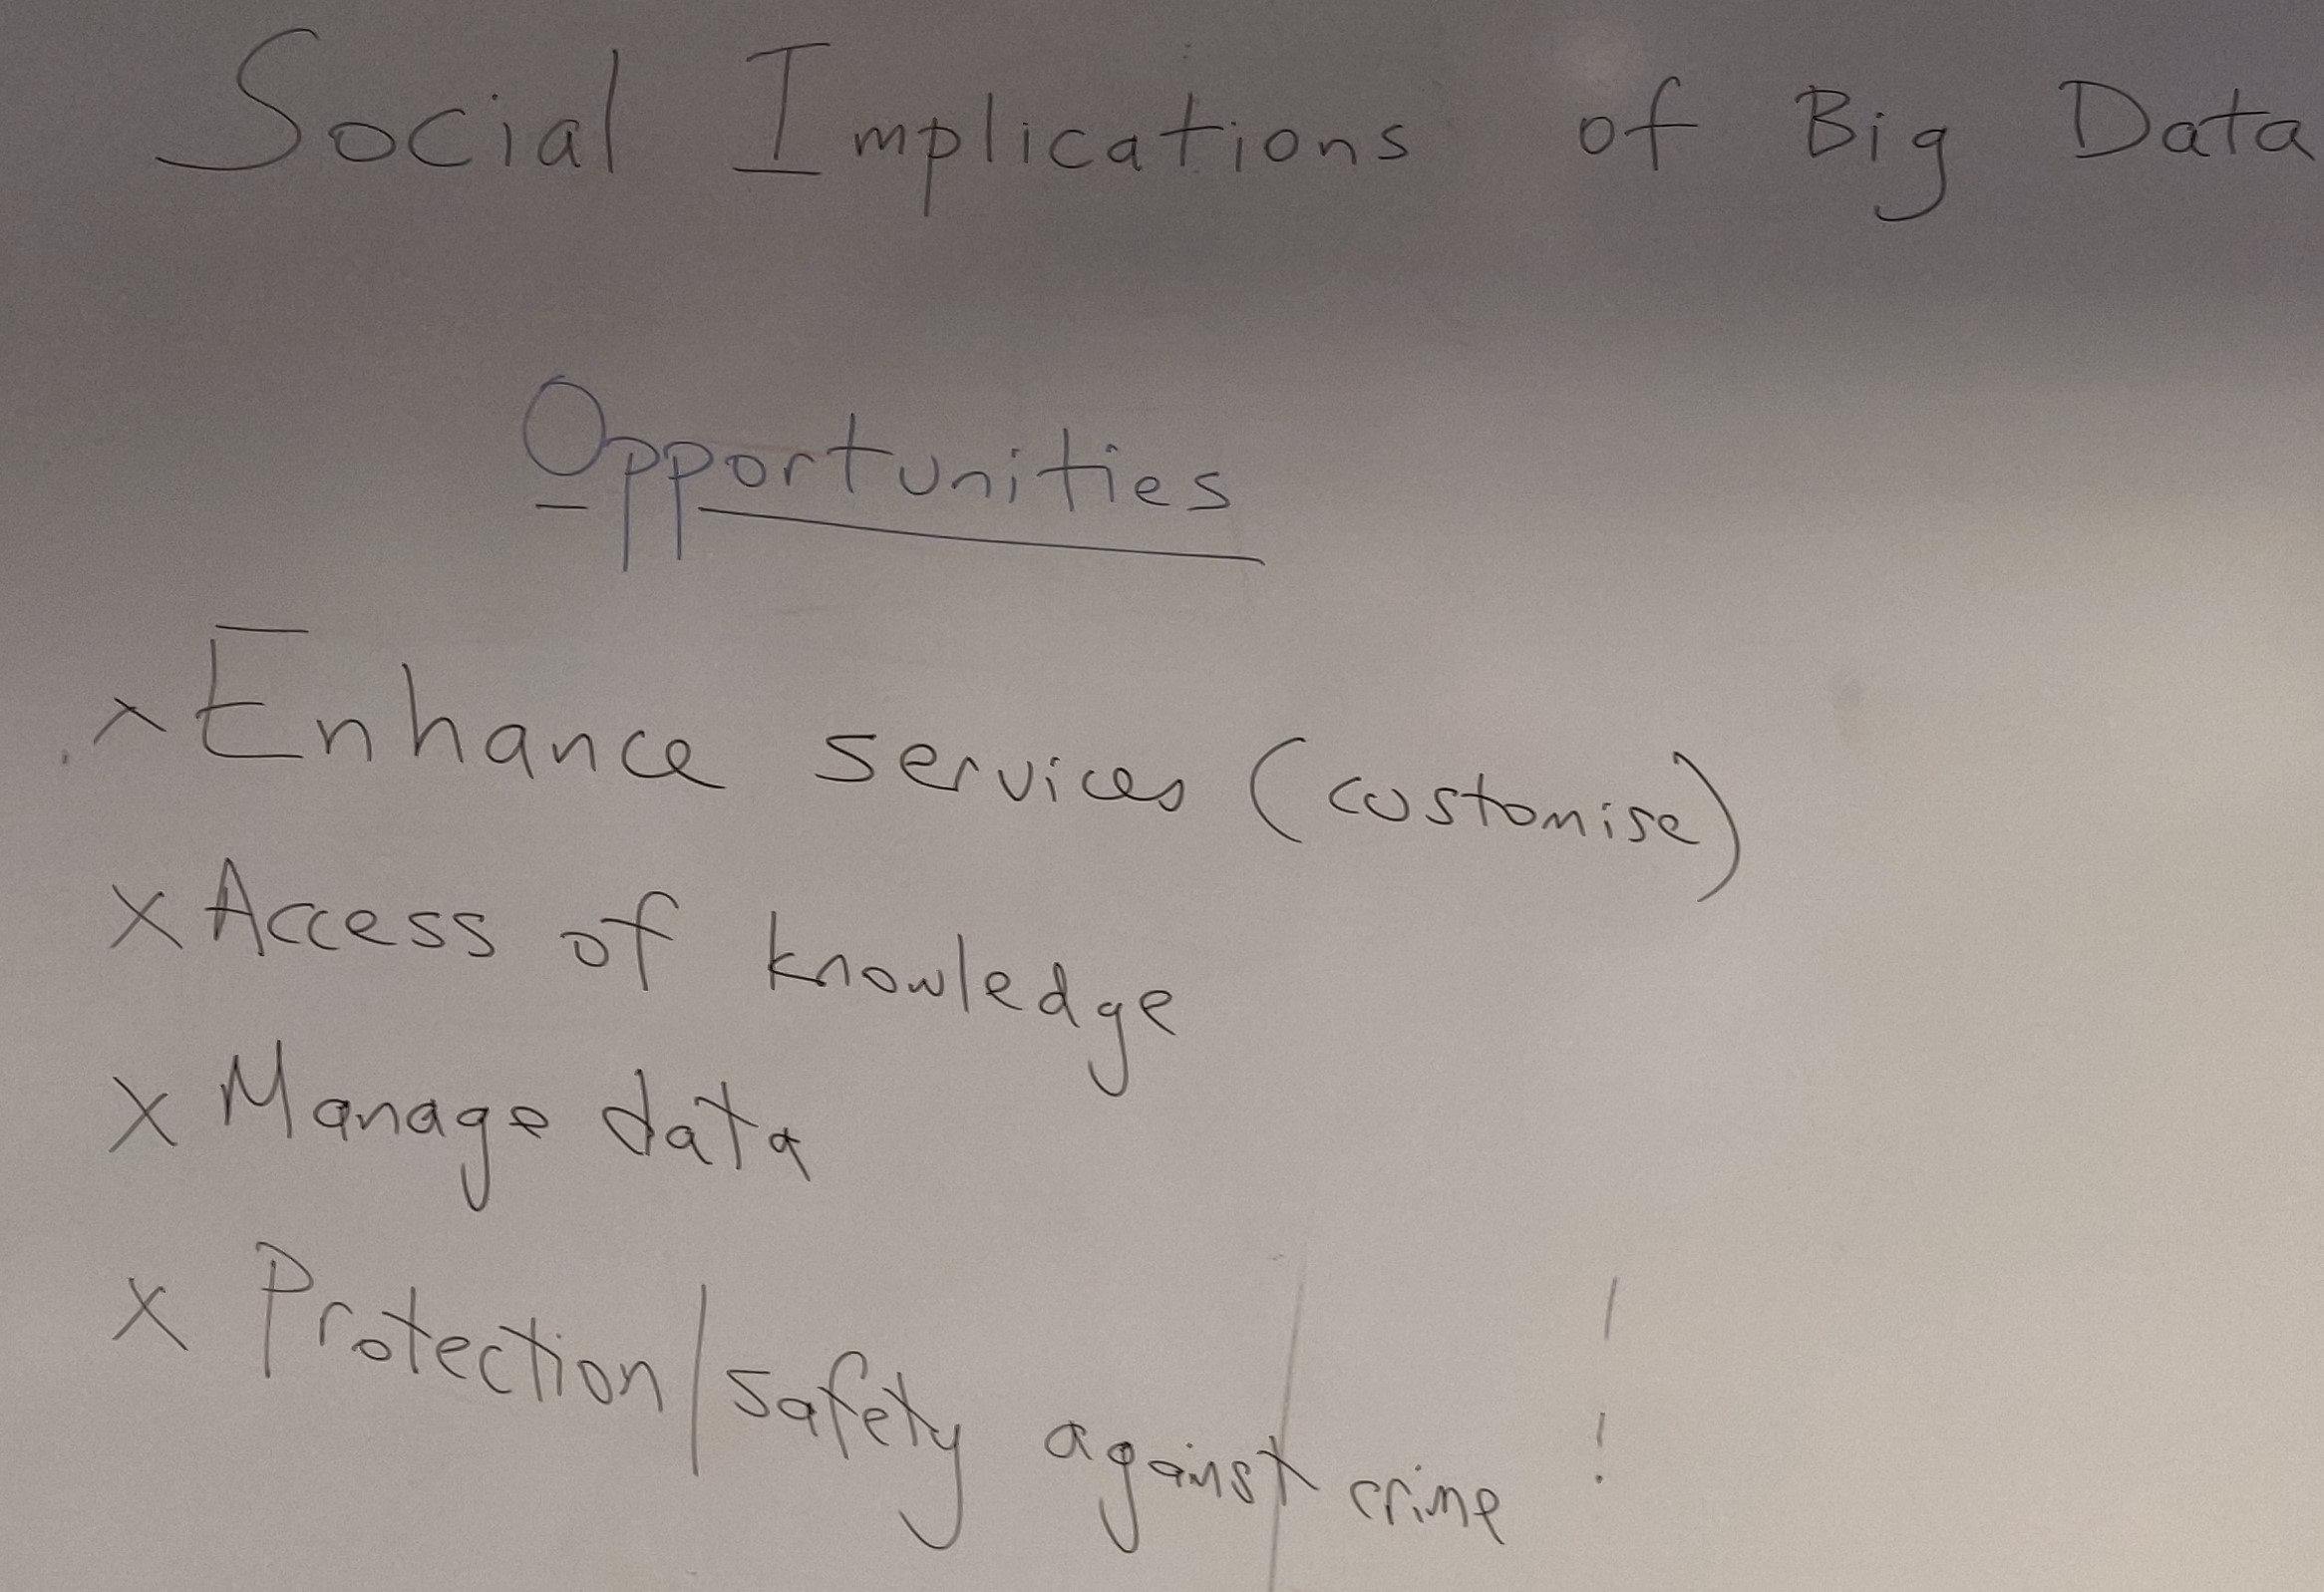 Social Implications of Big Data
Opportunities
x Enhance services (customise)
x Access of knowledge
x Manage data
x Protection/safety against crime !